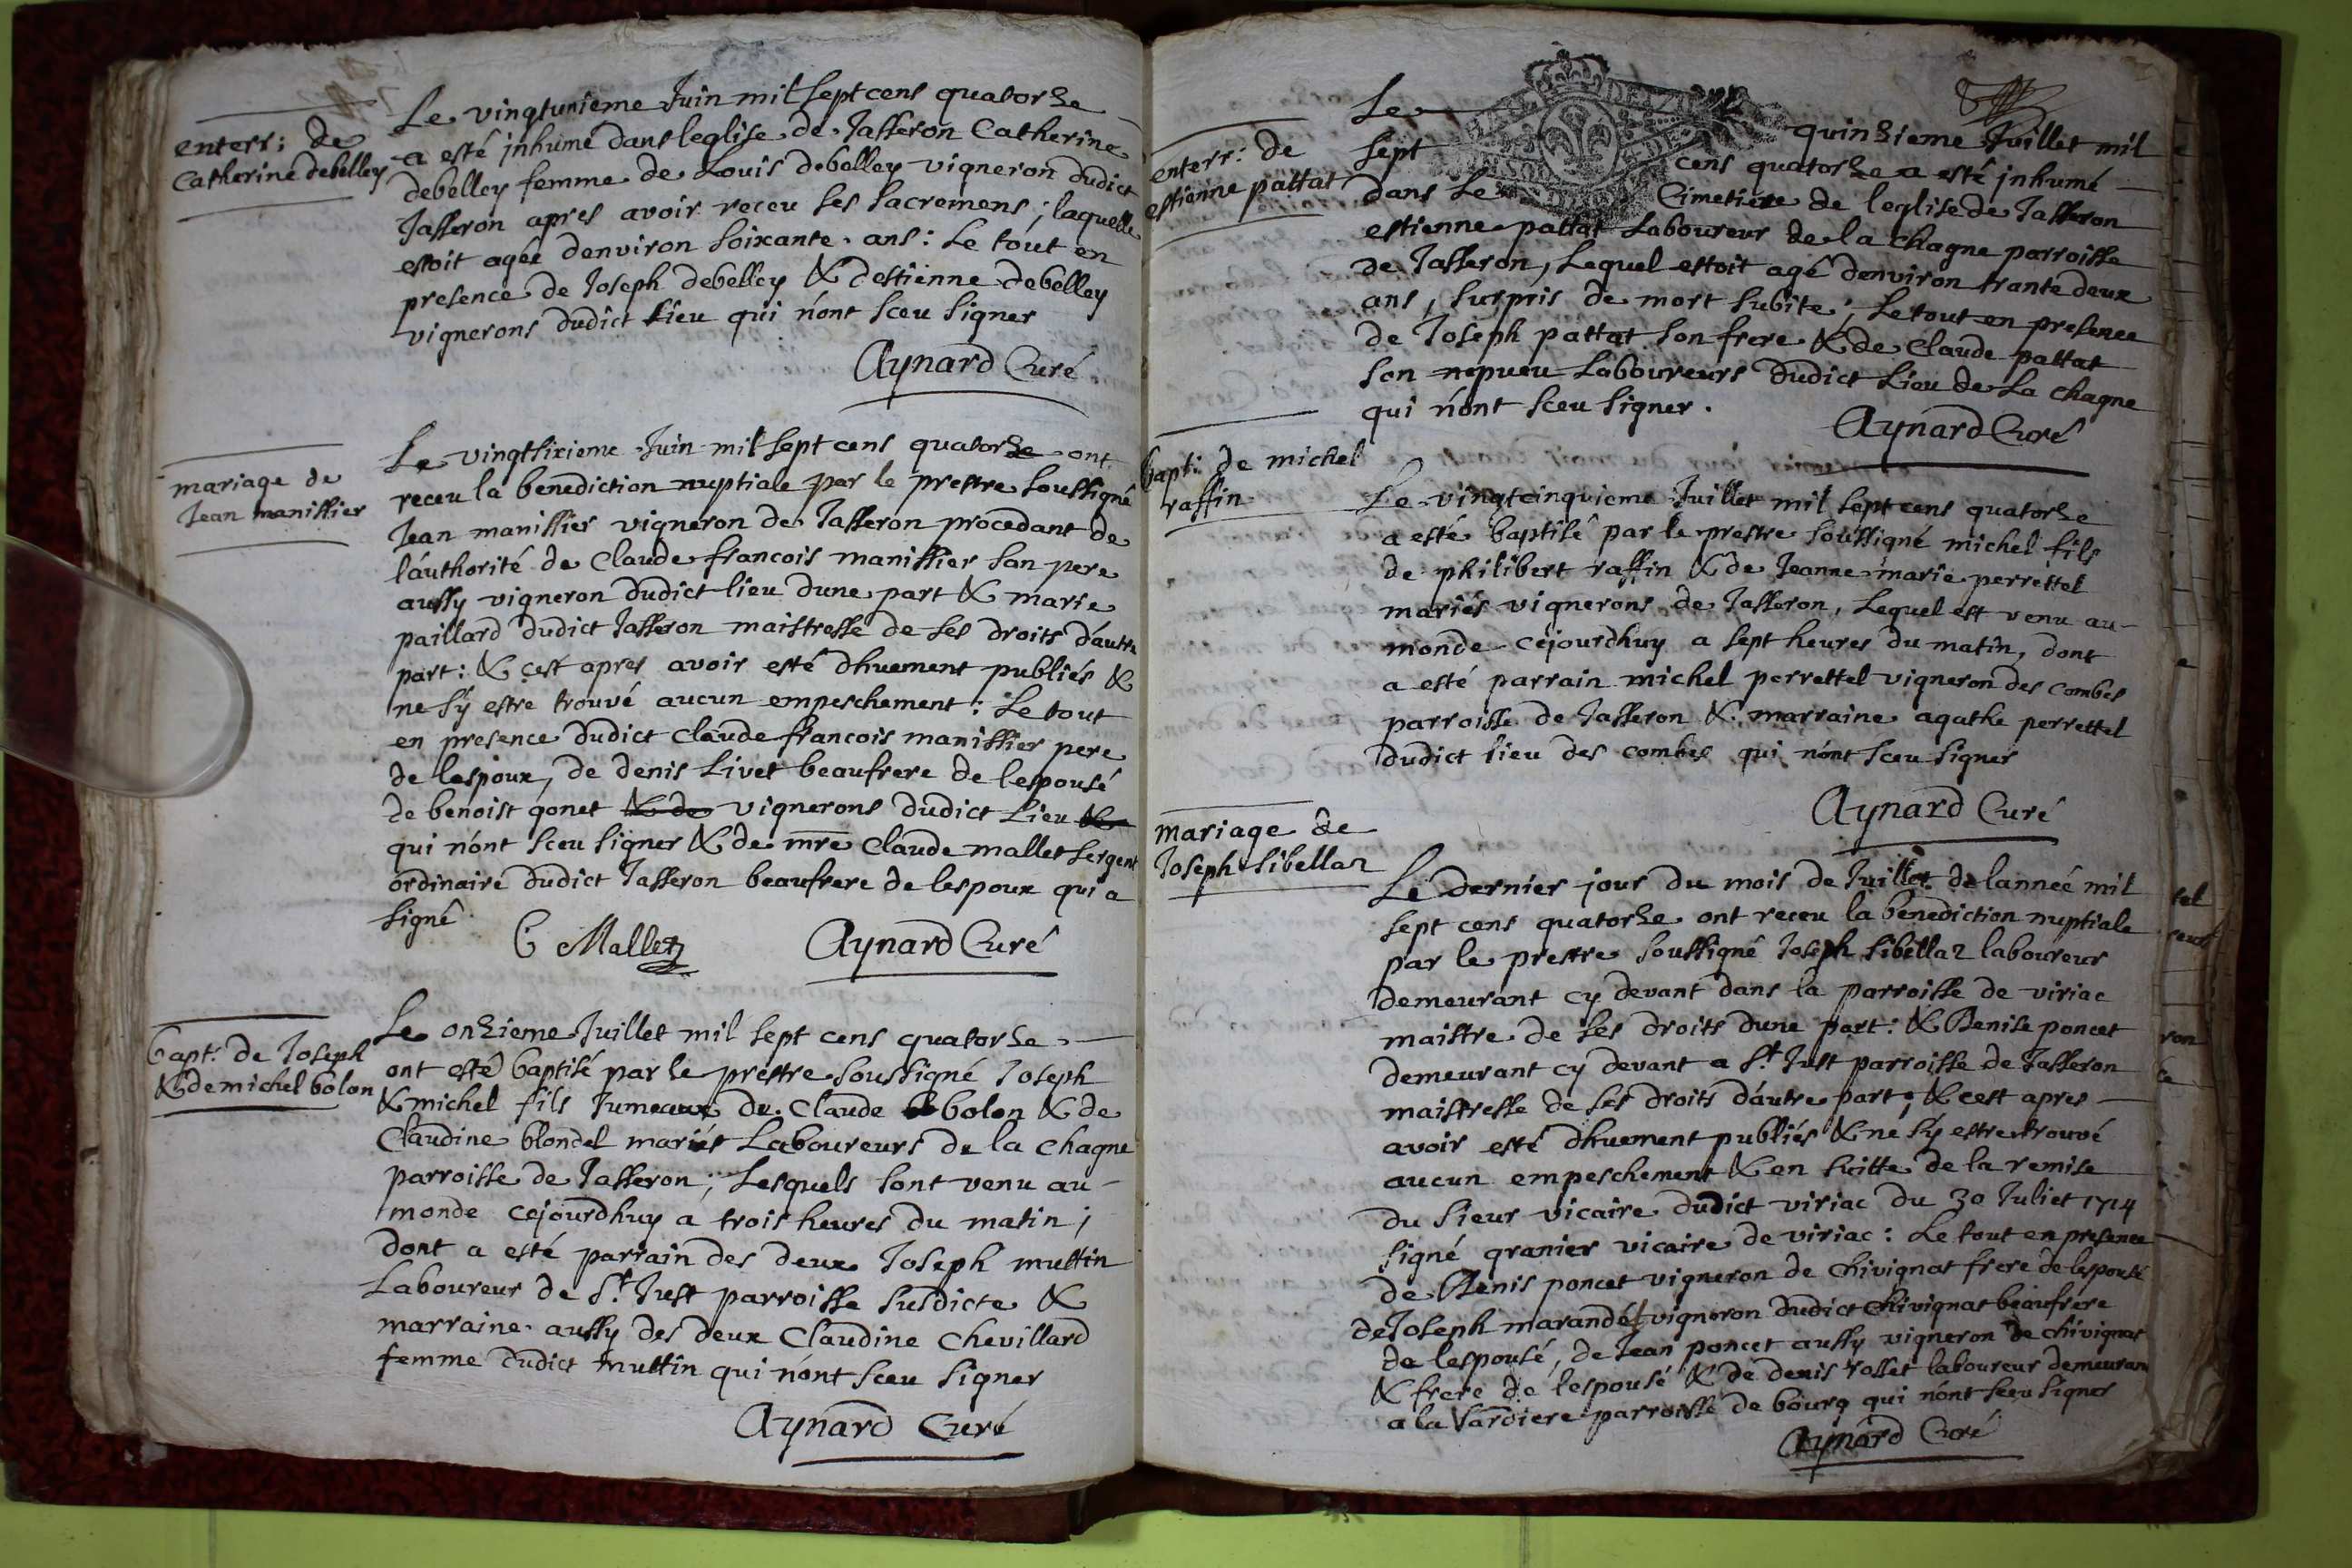 enterr: de
Catherine debelley
Le vingtunieme Juin mil sept cens quatorze
a esté jnhumé dans leglise de Jasseron Catherine
debelley femme de Louis debelley vigneron dudict
Jasseron apres avoir receu ses sacremens ; laquelle
estoit agée denviron soixante ans : Le tout en
presence de Joseph debelley & destienne debelley
vignerons dudict Lieu qui n'ont sceu signer
Aynard Curé
mariage de
Jean manissier
Le vingtsixieme Juin mil sept cens quatorze ont
receu la benediction nuptiale par le prestre soussigné
Jean manissier vigneron de Jasseron procedant de
láuthorité de Claude francois manissier son pere
aussy vigneron dudict lieu dune part & marie
paillard dudict Jasseron maistresse de ses droits d'autre
part : & cest apres avoir esté dhuement publiés &
ne sÿ estre trouvé aucun empeschement : Le tout
en presence dudict Claude francois manissier pere
de lespoux, de denis Livet beaufrere de lespousé
de benoist gonet & de vignerons dudict Lieu &
qui n'ont sceu signer & de mre Claude mallet sergent
ordinaire dudict Jasseron beaufrere de lespoux qui a
signé
C Mallet Aynard Curé
bapt: de Joseph
& de michel bolon
Le onzieme Juillet mil sept cens quatorze
ont esté baptisé par le prestre soussigné Joseph
& michel fils Jumeaux de Claude bolon & de
Claudine blondel mariés Laboureurs de la chagne
parroisse de Jasseron ; Lesquels sont venu au
monde cejourdhuy a trois heures du matin ;
dont a esté parrain des deux Joseph muttin
Laboureur de St Just parroisse susdicte &
marraine aussy des deux Claudine Chevillard
femme dudict muttin qui n'ont sceu signer
Aynard Curé
enterr: de
estienne pattat
Le quinzieme Juillet mil
sept cens quatorze a esté jnhumé
dans Le Cimetiere de leglise de Jasseron
estienne pattat Laboureur de la chagne parroisse
de Jasseron, Lequel estoit agé denviron trante deux
ans, surpris de mort subite ; Le tout en presence
de Joseph pattat son frere & de Claude pattat
son nepueu Laboureurs dudict Lieu de La chagne
qui n'ont sceu signer .
Aynard Curé
bapt: de michel
raffin
Le vingtcinquieme Juillet mil sept cens quatorze
a esté baptisé par le prestre soussigné michel fils
de philibert raffin & de Jeanne marie perrettel
mariés vignerons de Jasseron, Lequel est venu au
monde cejourdhuy a sept heures du matin, dont
a esté parrain michel perrettel vigneron des combes
parroisse de Jasseron & marraine agathe perrettel
dudict lieu des combes qui n'ont sceu signer
Aynard Curé
mariage de
Joseph sibellaz
Le dernier jour du mois de Juillet de lannée mil
sept cens quatorze ont receu la benediction nuptiale
par le prestre soussigné Joseph sibellaz laboureur
demeurant cy devant dans la parroisse de viriac
maistre de ses droits dune part : & Denise poncet
demeurant cy devant a St Just parroisse de Jasseron
maistresse de ses droits d'autre part ; & cest apres
avoir esté dhuement publiés & ne sÿ estre trouvé
aucun empeschement & en suitte de la remise
du sieur vicaire dudict viriac du 30 Juliet 1714
signé granier vicaire de viriac : Le tout en presence
de Denis poncet vigneron de chivignat frere de lespousé
de Joseph marandet vigneron dudict chivignat beaufrere
de lespousé, de Jean poncet aussy vigneron de chivignat
& frere de lespousé & de denis rosset laboureur demeurant
a la Vardiere parroisse de bourg qui n'ont sceu signer
Aynard Curé